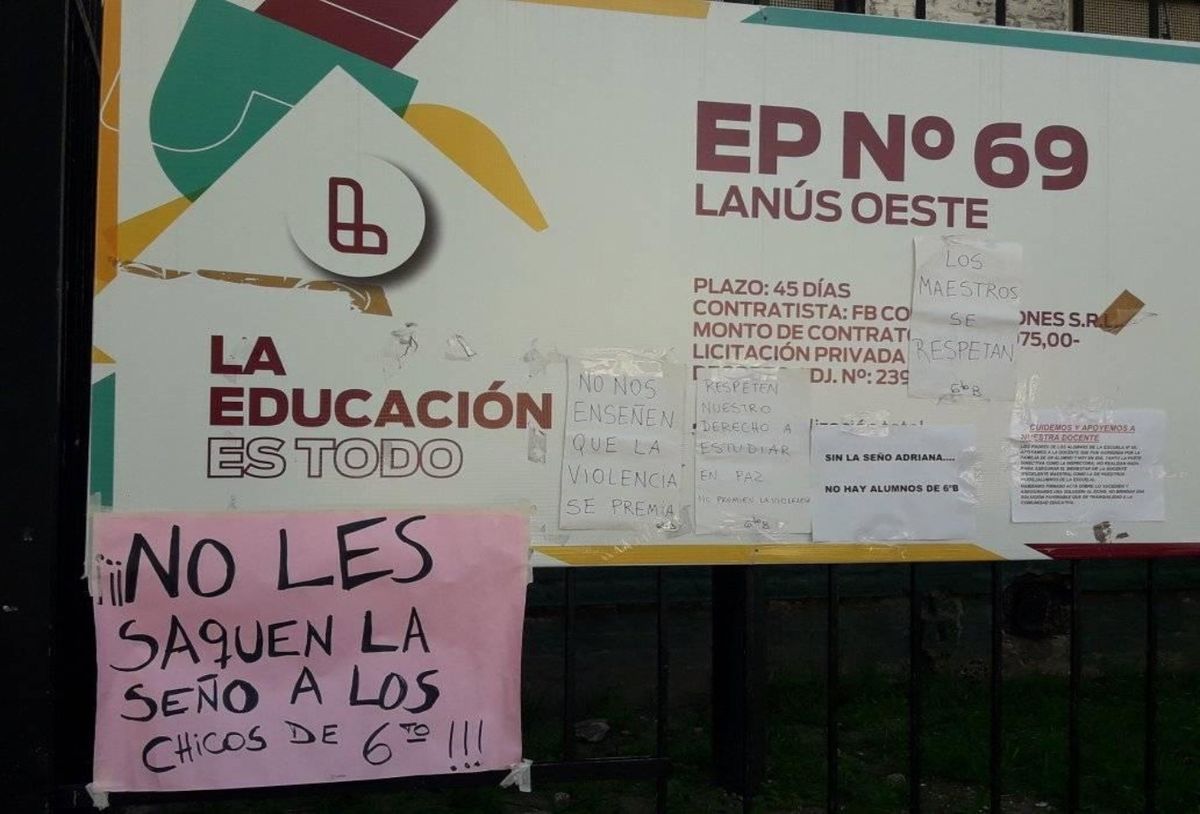 EP Nº 69
LANÚS OESTE
PLAZO: 45 DÍAS
CONTRATISTA: FB CO ONES S.R.L.
MONTO DE CONTRAT 075,00-
LICITACIÓN PRIVADA
DJ. Nº: 239
LOS
MAESTROS
SE
RESPETAN
6to B
LA
EDUCACIÓN
ES TODO
NO NOS
ENSEÑEN
QUE LA
VIOLENCIA
SE PREMIA
6to B
RESPETEN
NUESTRO
DERECHO A
ESTUDIAR
EN PAZ
NO PREMIEN LA VIOLENCIA
6to B
SIN LA SEÑO ADRIANA....
NO HAY ALUMNOS DE 6ºB
CUIDEMOS Y APOYEMOS A
NUESTRA DOCENTE
¡¡¡NO LES
SAQUEN LA
SEÑO A LOS
CHICOS DE 6TO !!!